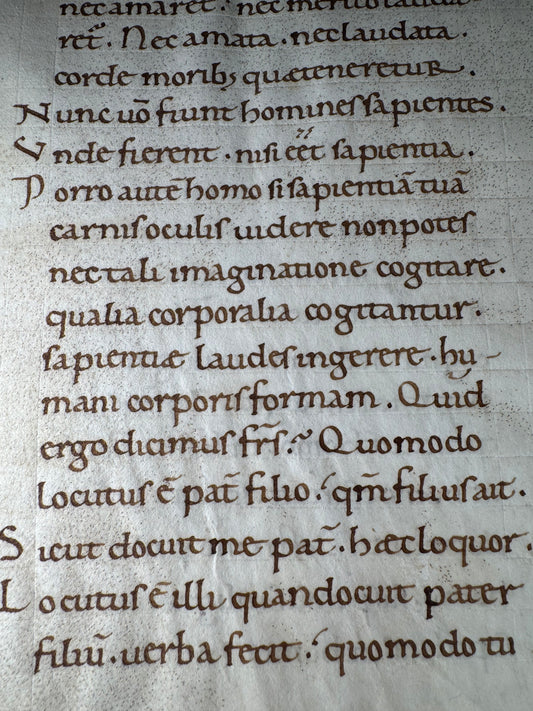 nec amaret. nec merito lauda
ret̃. Nec amata. nec laudata.
corde moribꝫ quæ teneretur.
Nunc uo᷒̄ fiunt homines sapientes.
Vnde fierent. nisi eēt sapientia.
Porro autē homo si sapientiā tuā
carnis oculis uidere non potes
nec tali imaginatione cogitare.
qualia corporalia cogitantur.
sapientiæ laudes ingerere. hu-
mani corporis formam. Quid
ergo dicimus fr̄s. Quomodo
locutus ē pat̄ filio. qm̄ filius ait.
Sicut docuit me pat̄. hæc loquor.
Locutus ē illi quando cuit pater
filiū. uerba fecit. quomodo tu